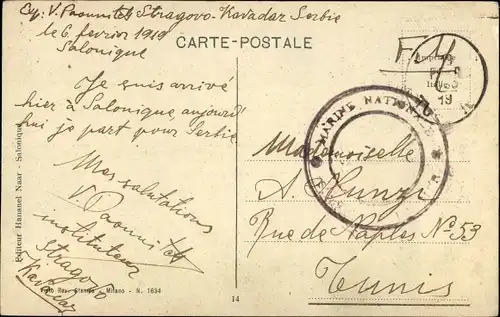 Exp: V. Paounitch Stragovo-Kavadar Serbie
le 6 fevrier 1919
Salonique
CARTE-POSTALE
F M
Je suis arrivé
hier à Salonique, aujourd'
hui je part pour Serbie
Mes salutations
V. Paounitch
instituteur
Stragovo
Kavadar
Editeur Hananel Naar - Salonique
Vieto Rev. Stampa - Milano - N. 1634
14
MARINE NATIONALE
19
Mademoiselle
A. Kunzi
Rue de Naples No 53
Tunis